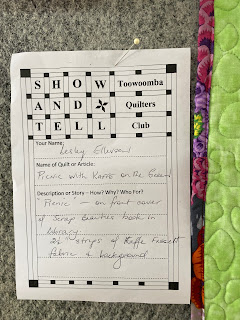 SHOW Toowoomba
AND Quilters
TELL Club
Your Name:
Lesley
Name of Quilt or Article:
Picnic with Kaffe on the Green
Description or Story - How? Why? Who For?
"Picnic" - on front cover
of Scrap Beauties book in
library.
2½" strips of Kaffe Fassett
fabric & background